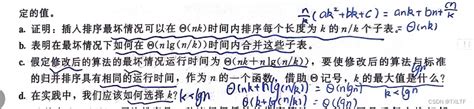 定的值。 n/k (ak²+bk+c) = ank+bn+
a. 证明：插入排序最坏情况可以在 Θ(nk)时间内排序每个长度为 k 的 n/k 个子表。= Θ(nk)
b. 表明在最坏情况下如何在 Θ(nlg(n/k))时间内合并这些子表。
c. 假定修改后的算法的最坏情况运行时间为 Θ(nk+nlg(n/k))，要使修改后的算法与标准
的归并排序具有相同的运行时间，作为 n 的一个函数，借助 Θ 记号，k 的最大值是什么？
d. 在实践中，我们应该如何选择 k？ k<lgn